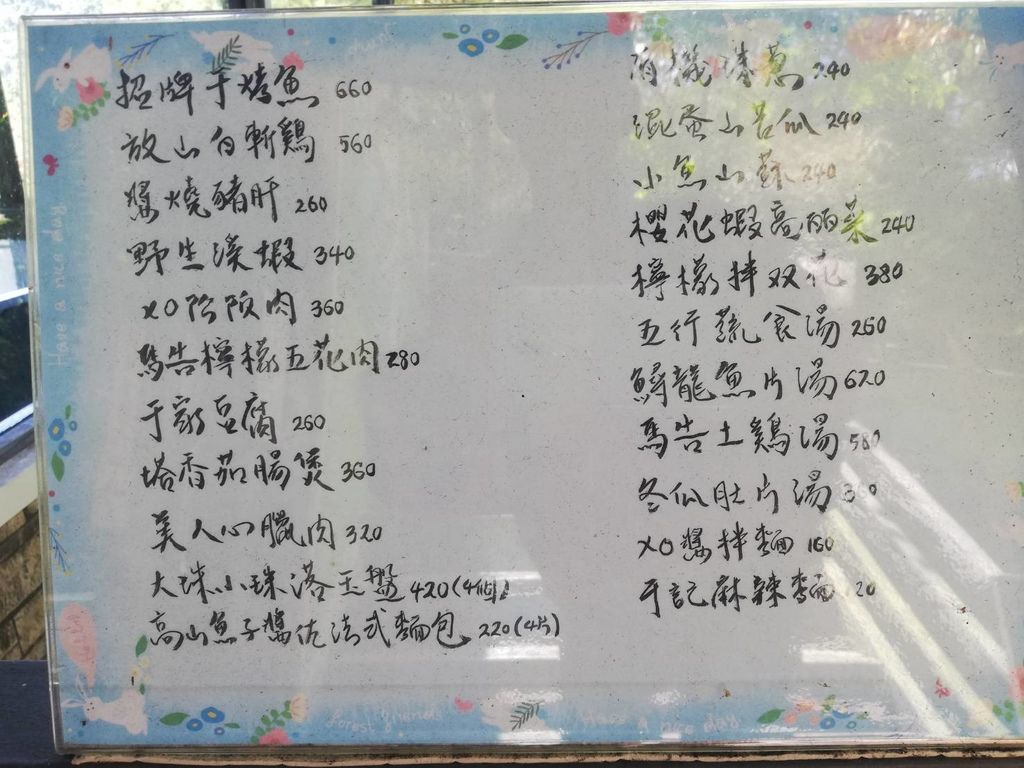 招牌于烤魚 660
放山白斬鷄 560
醬燒豬肝 260
野生溪蝦 340
XO 肉 360
馬告檸檬五花肉 280
于家豆腐 260
塔香茄腸煲 360
美人心臘肉 320
大珠小珠落玉盤 420(4個)
高山魚子醬佐法式麵包 220(4片)
有機 240
混蛋山苦瓜 240
小魚山蘇 240
櫻花蝦高麗菜 240
檸檬拌双花 380
五行蔬食湯 260
鱘龍魚片湯 620
馬告土鷄湯 580
冬瓜肚片湯
XO醬拌麵 160
于記麻辣麵
Have a nice day
Forest Friends
Have a nice day